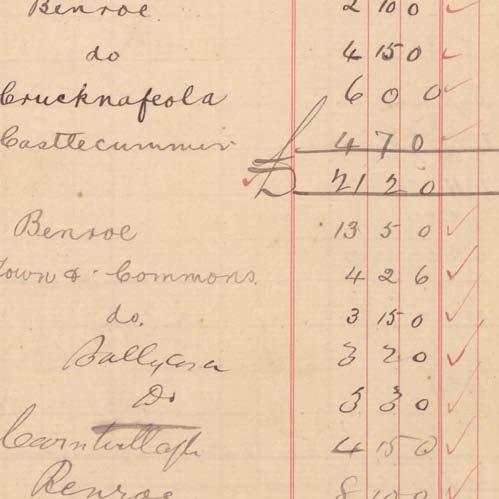 Benroe 2 10 0
do 4 15 0
Crucknafeola 6 0 0
Castlecummin 4 7 0
£ 21 2 0
Benroe 13 5 0
Town & Commons. 4 2 6
do. 3 15 0
Ballycasa 3 2 0
Do 3 3 0
4 15 0
Benroe 8 10 0